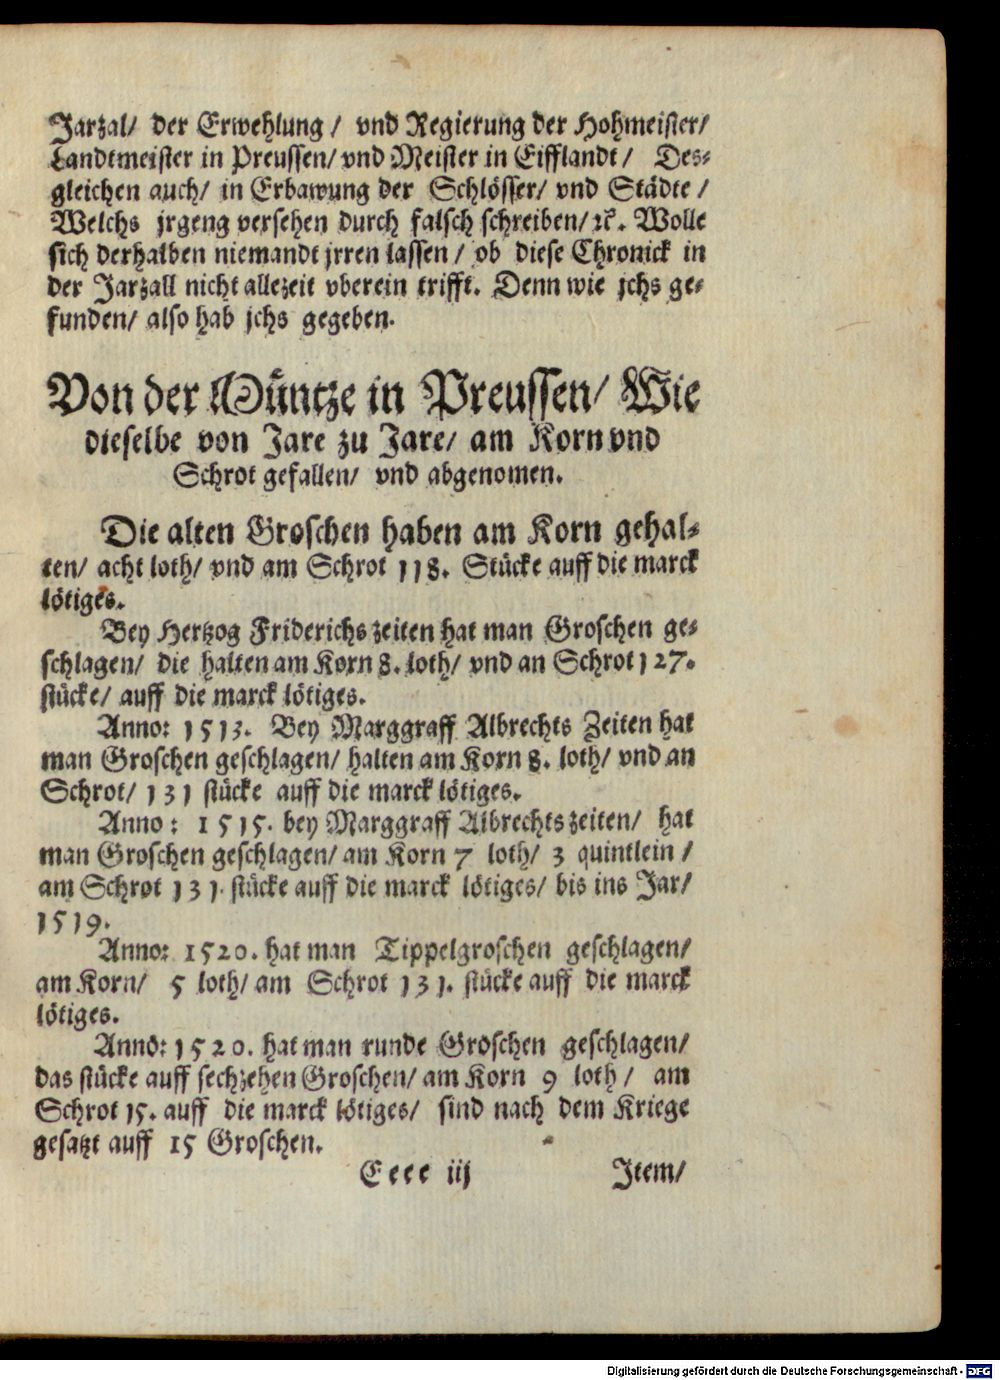 Jarzal/ der Erwehlung / vnd Regierung der Hohmeister/
Landtmeister in Preussen/ vnd Meister in Eifflandt / Des-
gleichen auch/ in Erbawung der Schlösser/ vnd Städte /
Welchs jrgeng versehen durch falsch schreiben/ ꝛc. Wolle
sich derhalben niemandt jrren lassen / ob diese Chronick in
der Jarzall nicht allezeit vberein trifft. Denn wie jchs ge-
funden/ also hab jchs gegeben.
Von der Müntze in Preussen/ Wie
dieselbe von Jare zu Jare/ am Korn vnd
Schrot gefallen/ vnd abgenomen.
Die alten Groschen haben am Korn gehal-
ten/ acht loth/ vnd am Schrot 118. Stücke auff die marck
lötiges.
Bey Hertzog Friderichs zeiten hat man Groschen ge-
schlagen/ die halten am Korn 8. loth/ vnd an Schrot 127.
stücke/ auff die marck lötiges.
Anno: 1513. Bey Marggraff Albrechts Zeiten hat
man Groschen geschlagen/ halten am Korn 8. loth/ vnd an
Schrot/ 131 stücke auff die marck lötiges.
Anno: 1515. bey Marggraff Albrechts zeiten/ hat
man Groschen geschlagen/ am Korn 7 loth/ 3 quintlein /
am Schrot 131. stücke auff die marck lötiges/ bis ins Jar/
1519.
Anno: 1520. hat man Tippelgroschen geschlagen/
am Korn/ 5 loth/ am Schrot 131. stücke auff die marck
lötiges.
Anno: 1520. hat man runde Groschen geschlagen/
das stücke auff sechzehen Groschen/ am Korn 9 loth / am
Schrot 15. auff die marck lötiges/ sind nach dem Kriege
gesatzt auff 15 Groschen.
Eeee iij Item/
Digitalisierung gefördert durch die Deutsche Forschungsgemeinschaft - DFG